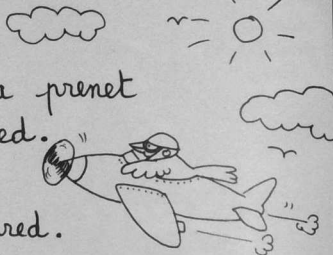 a prenet
ed.
red.